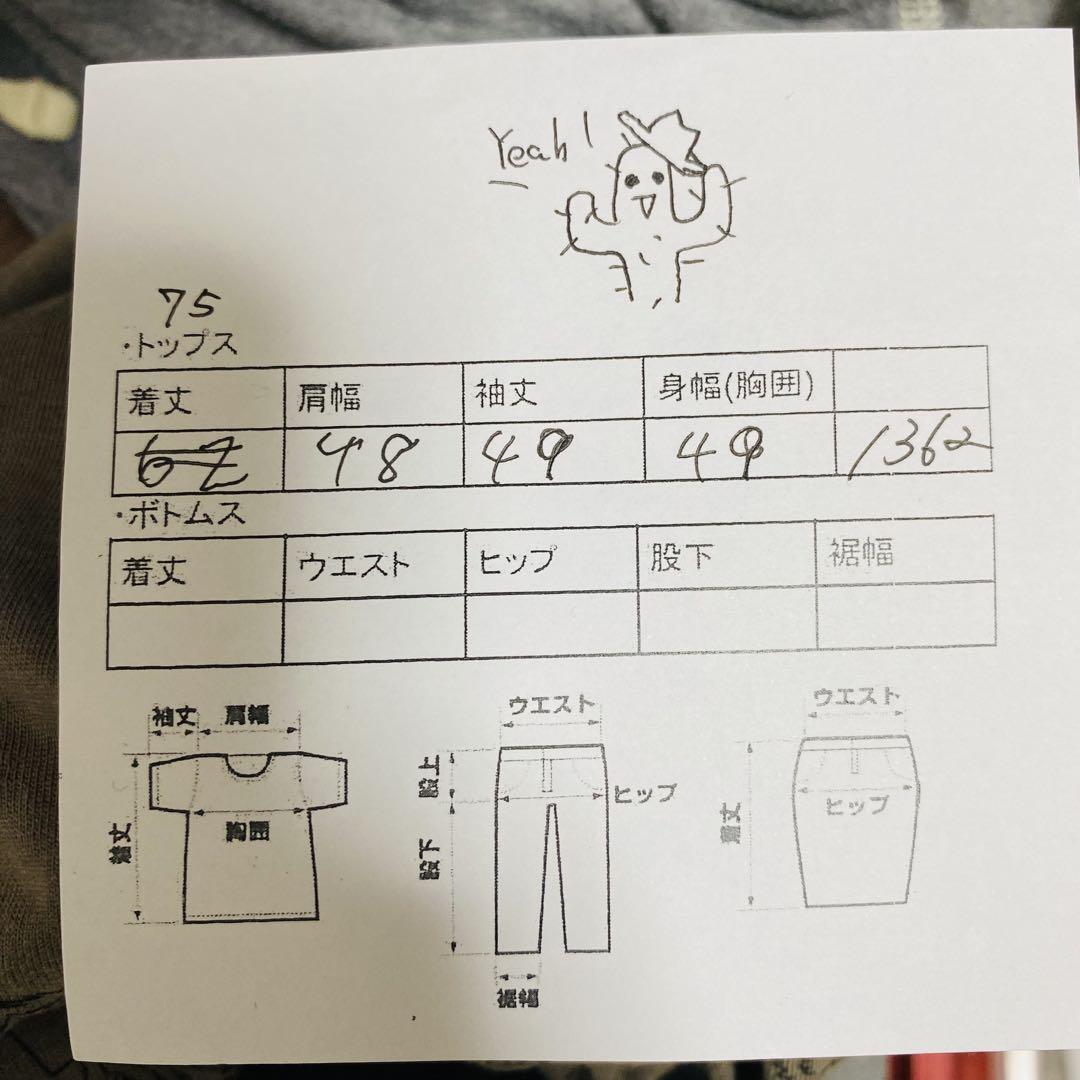 Yeah!
75
・トップス
着丈 肩幅 袖丈 身幅(胸囲)
67 48 49 49 1362
・ボトムス
着丈 ウエスト ヒップ 股下 裾幅
袖丈 肩幅
着丈
胸囲
ウエスト
股上
ヒップ
股下
裾幅
ウエスト
ヒップ
着丈